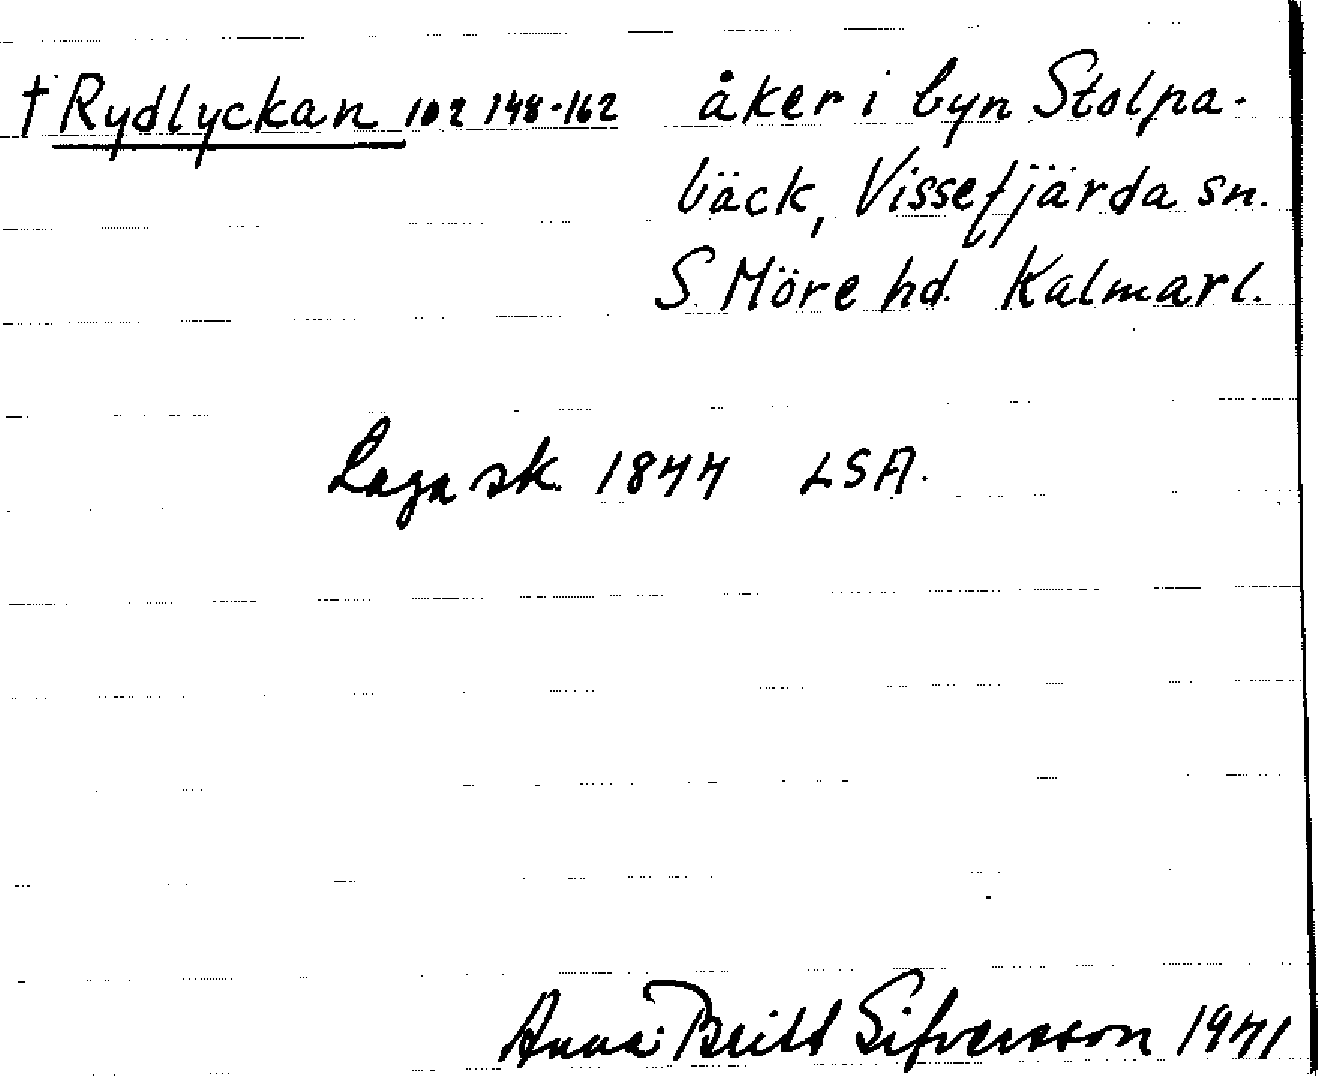 † Rydlyckan 102 148-162 åker i byn Stolpa-
bäck, Vissefjärda sn.
S. Möre hd. Kalmarl.
Laga sk. 1844 LSA.
Anna-Britt Sifversson 1941